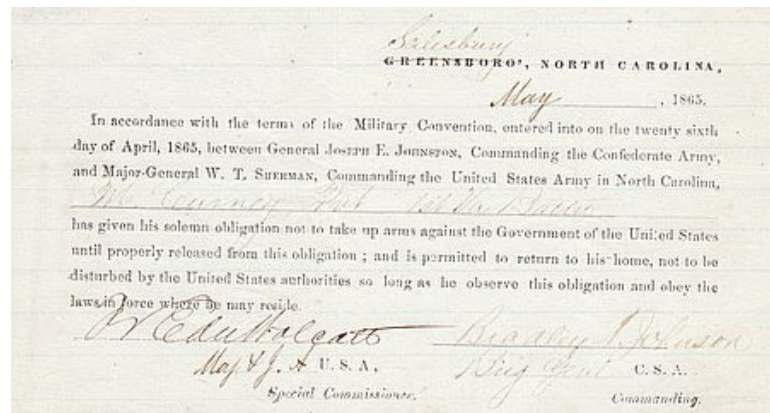 Salisbury
GREENSBORO', NORTH CAROLINA,
May , 1865.
In accordance with the terms of the Military Convention, entered into on the twenty sixth
day of April, 1865, between General JOSEPH E. JOHNSTON, Commanding the Confederate Army,
and Major-General W. T. SHERMAN, Commanding the United States Army in North Carolina,
has given his solemn obligation not to take up arms against the Government of the United States
until properly released from this obligation ; and is permitted to return to his home, not to be
disturbed by the United States authorities so long as he observe this obligation and obey the
laws in force where he may reside.
Bradley T. Johnson
U. S. A, Brig Genl C. S. A.
Special Commissioner. Commanding.